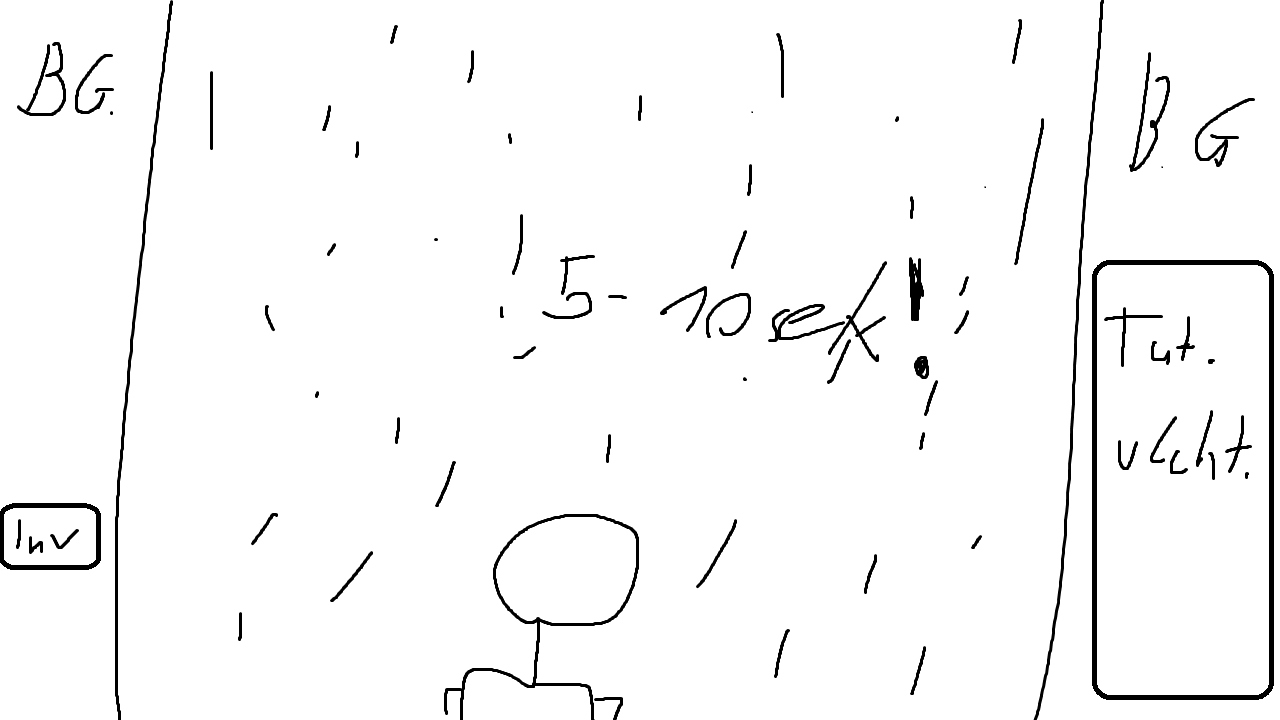 BG.
B.G
5-10 sek!
Tut.
vlcht.
Inv